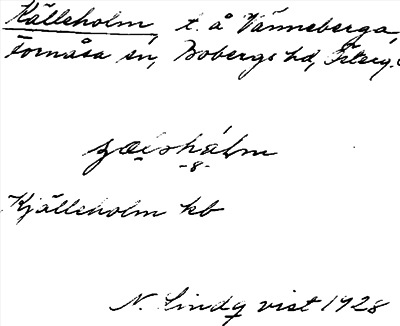 Källeholm, t. å Vänneberga,
Fornåsa sn, Bobergs hd, Österg.
Kjälleholm kb
N. Lindq vist 1928